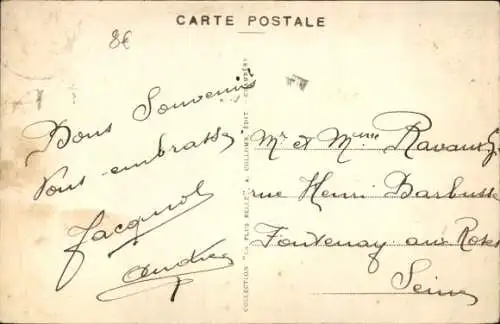 CARTE POSTALE
8€
Bons Souvenirs
Vous embrasse
Jacquot
Andrée
COLLECTION "LA PLUS BELLE", A. COLLOMB, ÉDIT. - CHAMBÉRY
Mr et Mme Ravaux
rue Henri Barbusse
Fontenay aux Roses
Seine